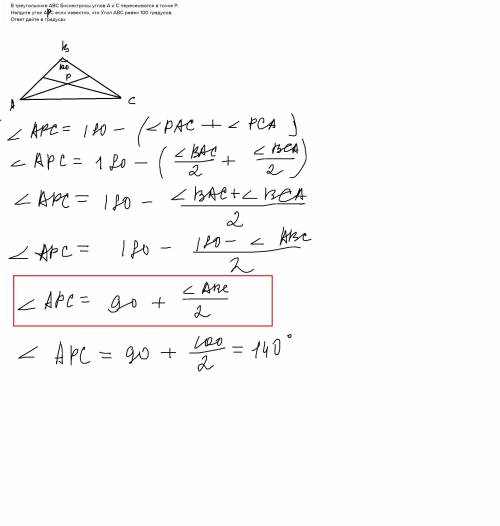 В треугольнике ABC Биссектрисы углов A и C пересекаются в точке P.
Найдите угол APC если известно, что Угол ABC равен 100 градусов.
Ответ дайте в градусах
B
100
P
A
C
∠ APC = 180 - (∠ PAC + ∠ PCA)
∠ APC = 180 - (∠BAC/2 + ∠BCA/2)
∠ APC = 180 - (∠BAC + ∠BCA)/2
∠ APC = 180 - (180 - ∠ ABC)/2
∠ APC = 90 + ∠ABC/2
∠ APC = 90 + 100/2 = 140°